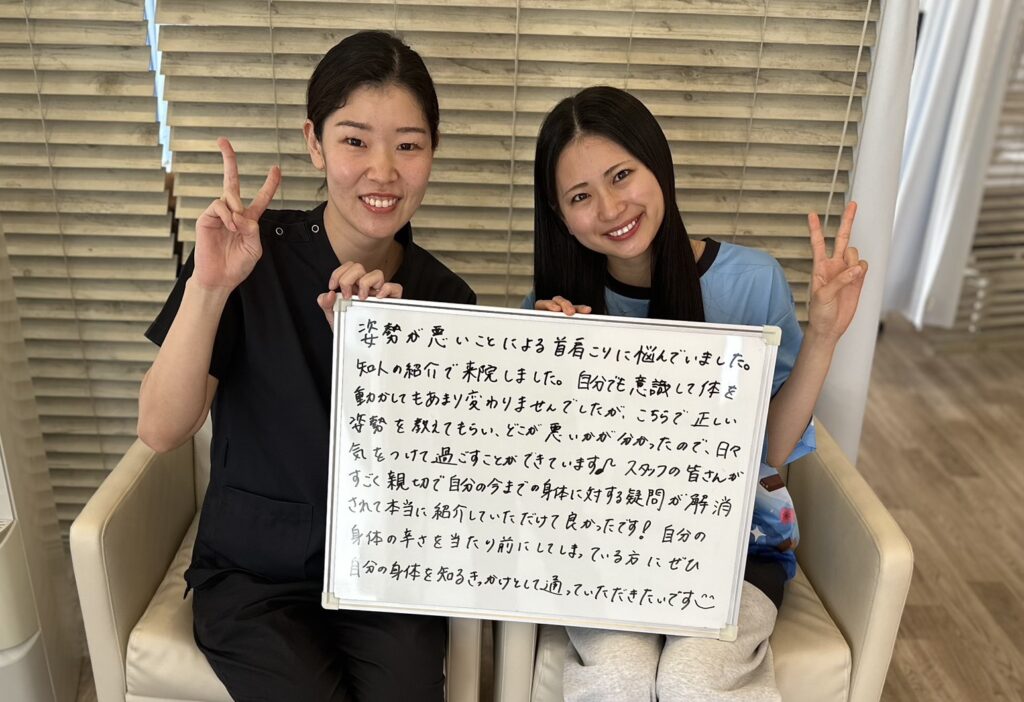 姿勢が悪いことによる首肩こりに悩んでいました。
知人の紹介で来院しました。自分でも意識して体を
動かしてもあまり変わりませんでしたが、こちらで正しい
姿勢を教えてもらい、どこが悪いかが分かったので、日々
気をつけて過ごすことができています♪ スタッフの皆さんが
すごく親切で自分の今までの身体に対する疑問が解消
されて本当に紹介していただけて良かったです! 自分の
身体の辛さを当たり前にしてしまっている方にぜひ
自分の身体を知るきっかけとして通っていただきたいです